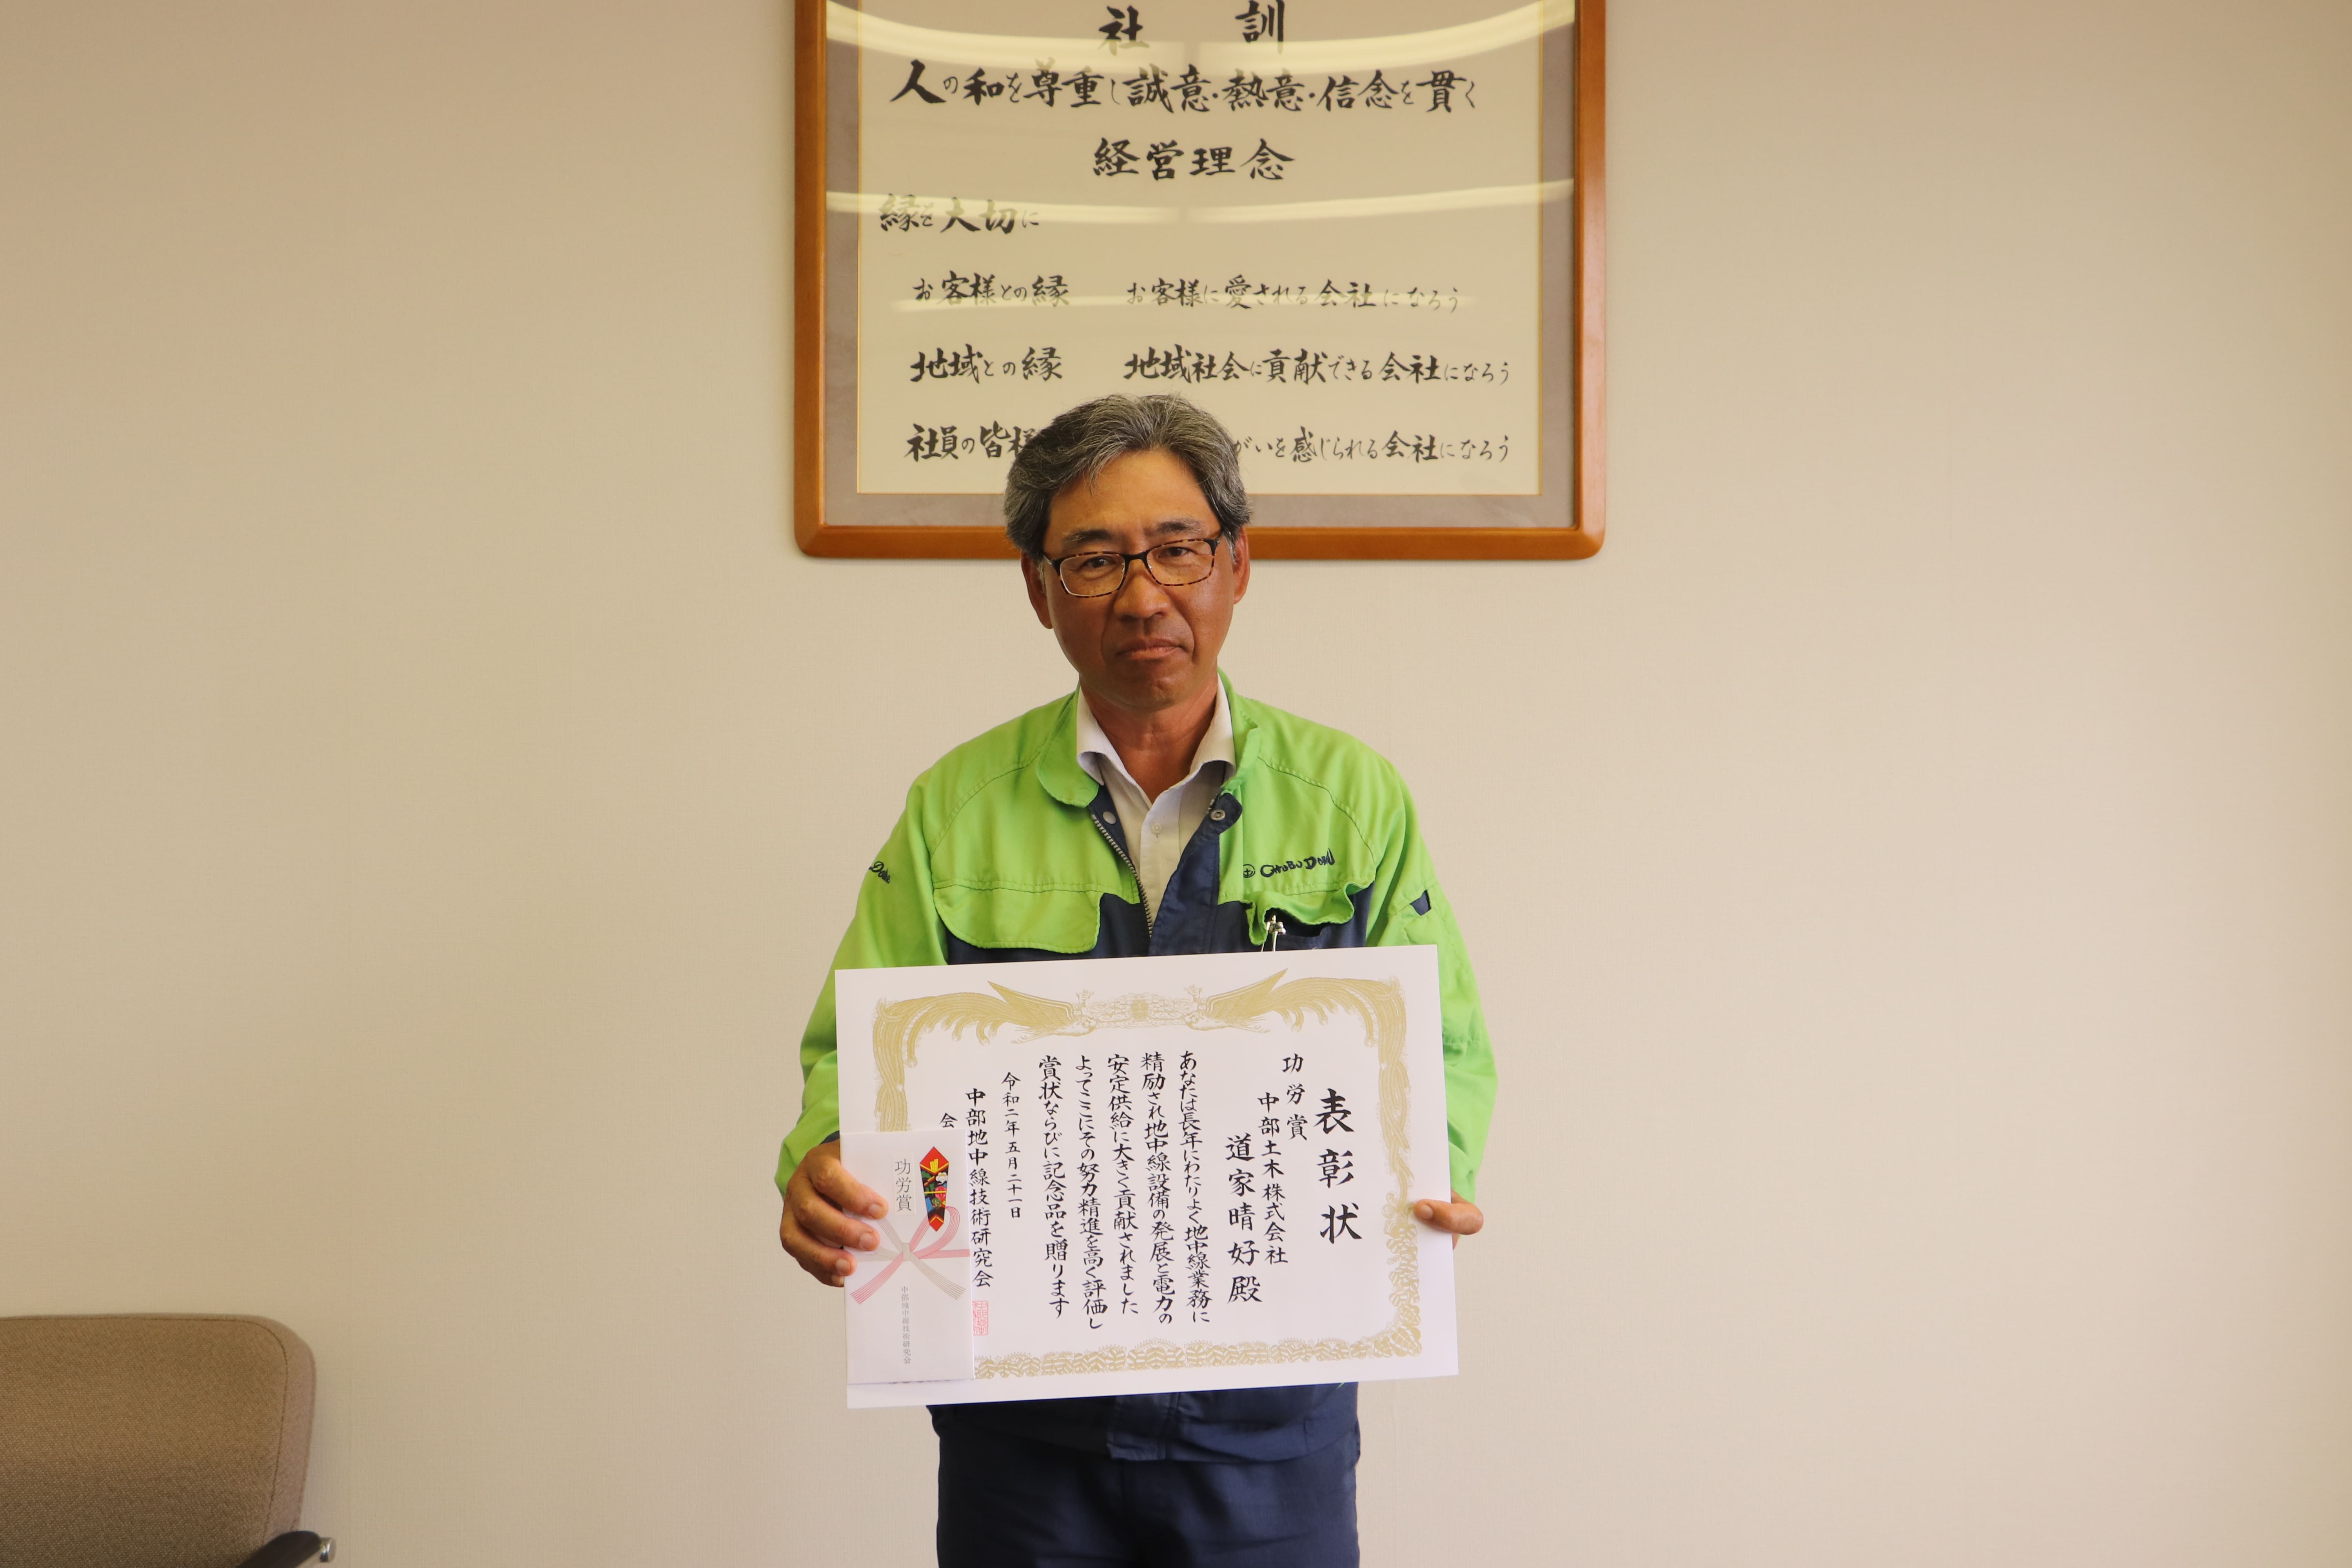 社 訓
人の和を尊重し誠意・熱意・信念を貫く
経営理念
縁を大切に
お客様との縁 お客様に愛される会社になろう
地域との縁 地域社会に貢献できる会社になろう
社員の皆様 がいを感じられる会社になろう
CHUBU DOBOKU
表彰状
功労賞
中部土木株式会社
道家晴好殿
あなたは長年にわたりよく地中線業務に
精励され地中線設備の発展と電力の
安定供給に大きく貢献されました
よってここにその努力精進を高く評価し
賞状ならびに記念品を贈ります
令和二年五月二十一日
中部地中線技術研究会
会
功労賞
中部地中線技術研究会